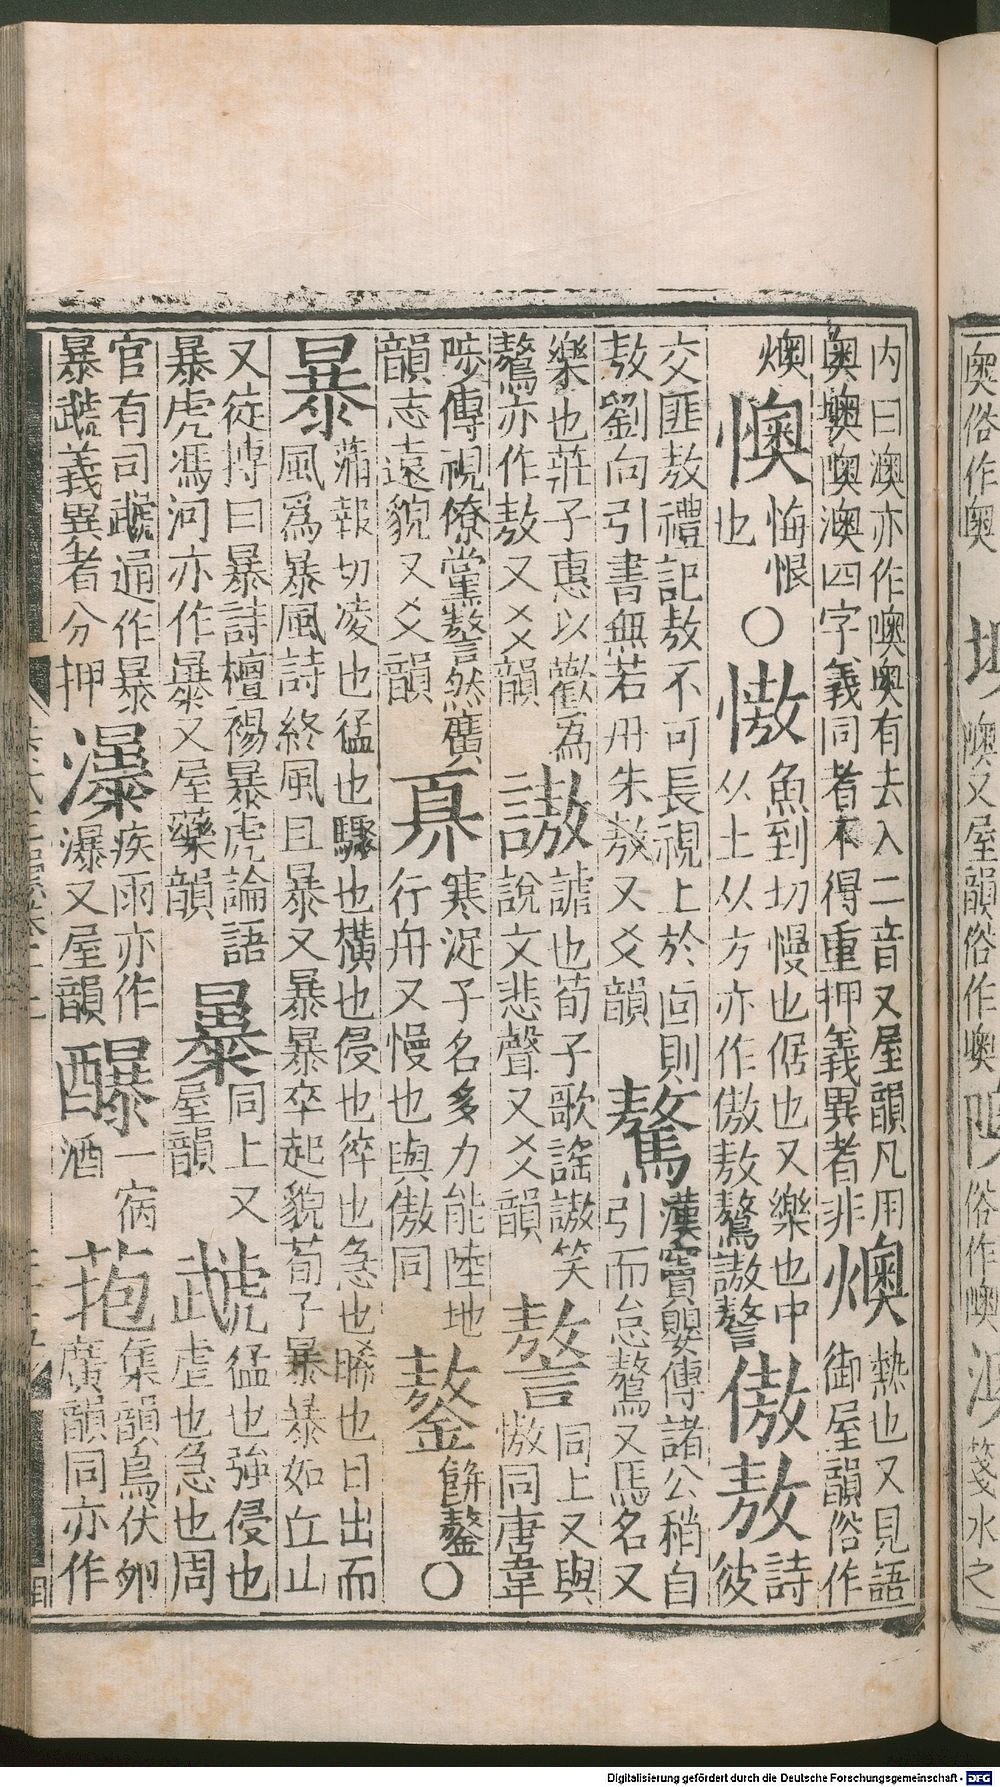 内曰澳亦作噢奥有去入二音又屋韻凡用
奥墺隩澳四字義同者不得重押義異者非
燠
熱也又見語
御屋韻俗作
燠
懊
悔恨
也
○
慠
魚到切慢也倨也又樂也中
从土从方亦作傲敖驁謸謷
傲敖
詩
彼
交匪敖禮記敖不可長視上於面則
敖劉向引書無若丹朱敖又爻韻
驁
漢竇嬰傳諸公稍自
引而怠驁又馬名又
樂也莊子惠以歡為
驁亦作敖又爻韻
謸
謔也荀子歌謡謸笑
說文悲聲又爻韻
謷
同上又與
慠同唐韋
陟傳視僚黨謷然廣
韻志遠貌又爻韻
奡
寒浞子名多力能陸地
行舟又慢也與傲同
鏊
餅鏊
○
暴
蒲報切凌也猛也驟也橫也侵也猝也急也晞也日出而
風爲暴風詩終風且暴又暴暴卒起貌荀子暴暴如丘山
又徒搏曰暴詩襢裼暴虎論語
暴虎馮河亦作㬥又屋藥韻
㬥
同上又
屋韻
虣
猛也強侵也
虐也急也周
官有司虣通作暴
暴虣義異者分押
瀑
疾雨亦作
瀑又屋韻
一病
酒
菢
集韻鳥伏卵
廣韻同亦作
奥俗作奥
隩又屋韻俗作噢
俗作噢
箋水之
Digitalisierung gefördert durch die Deutsche Forschungsgemeinschaft - DFG